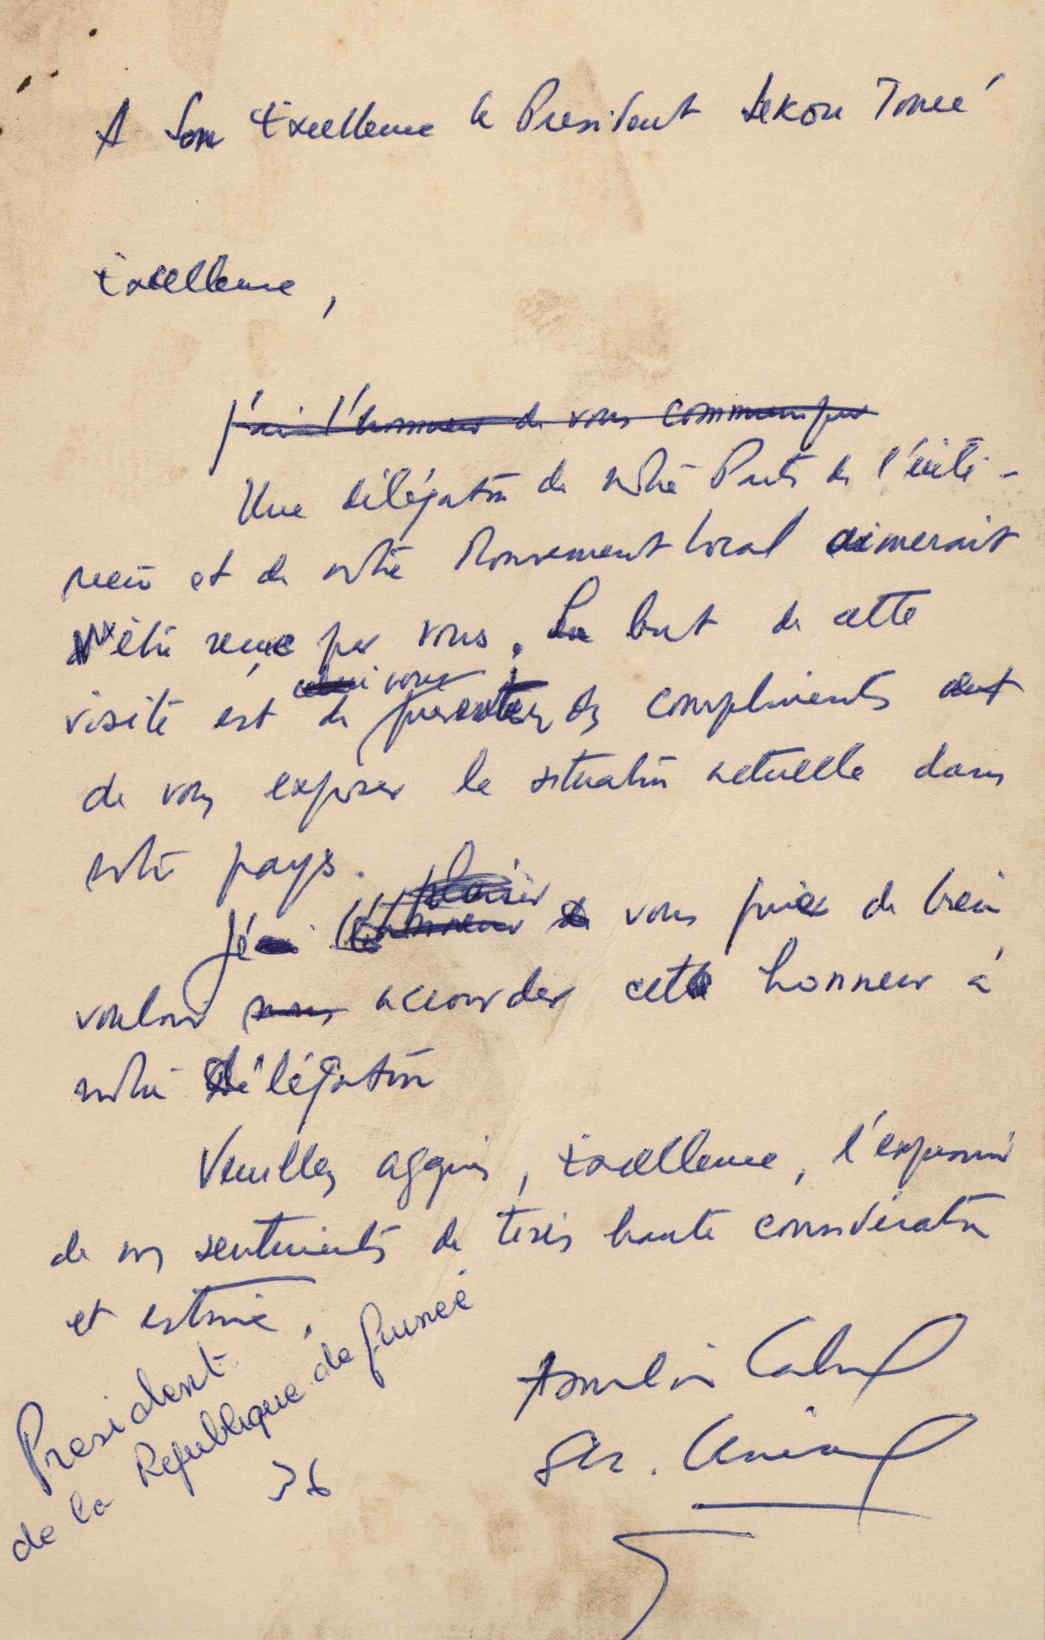 A Son Excellence le President Sekou Touré
Excellence,
j'ai l'honneur de vous communiquer
Une délégation de notre Parti de l'inté-
rieur et de notre Mouvement local aimerait
être reçue par vous. Le but de cette
vous
visite est de presenter des compliments et
de vous exposer la situation actuelle dans
notre pays.
plaisir
Je vous prie de bien
vouloir nous accorder cet honneur à
notre délégation
Veuillez agréer, Excellence, l'expression
de nos sentiments de très haute consideration
et estime.
President
de la Republique de Guineé
Amilcar Cabral
Sec.
36